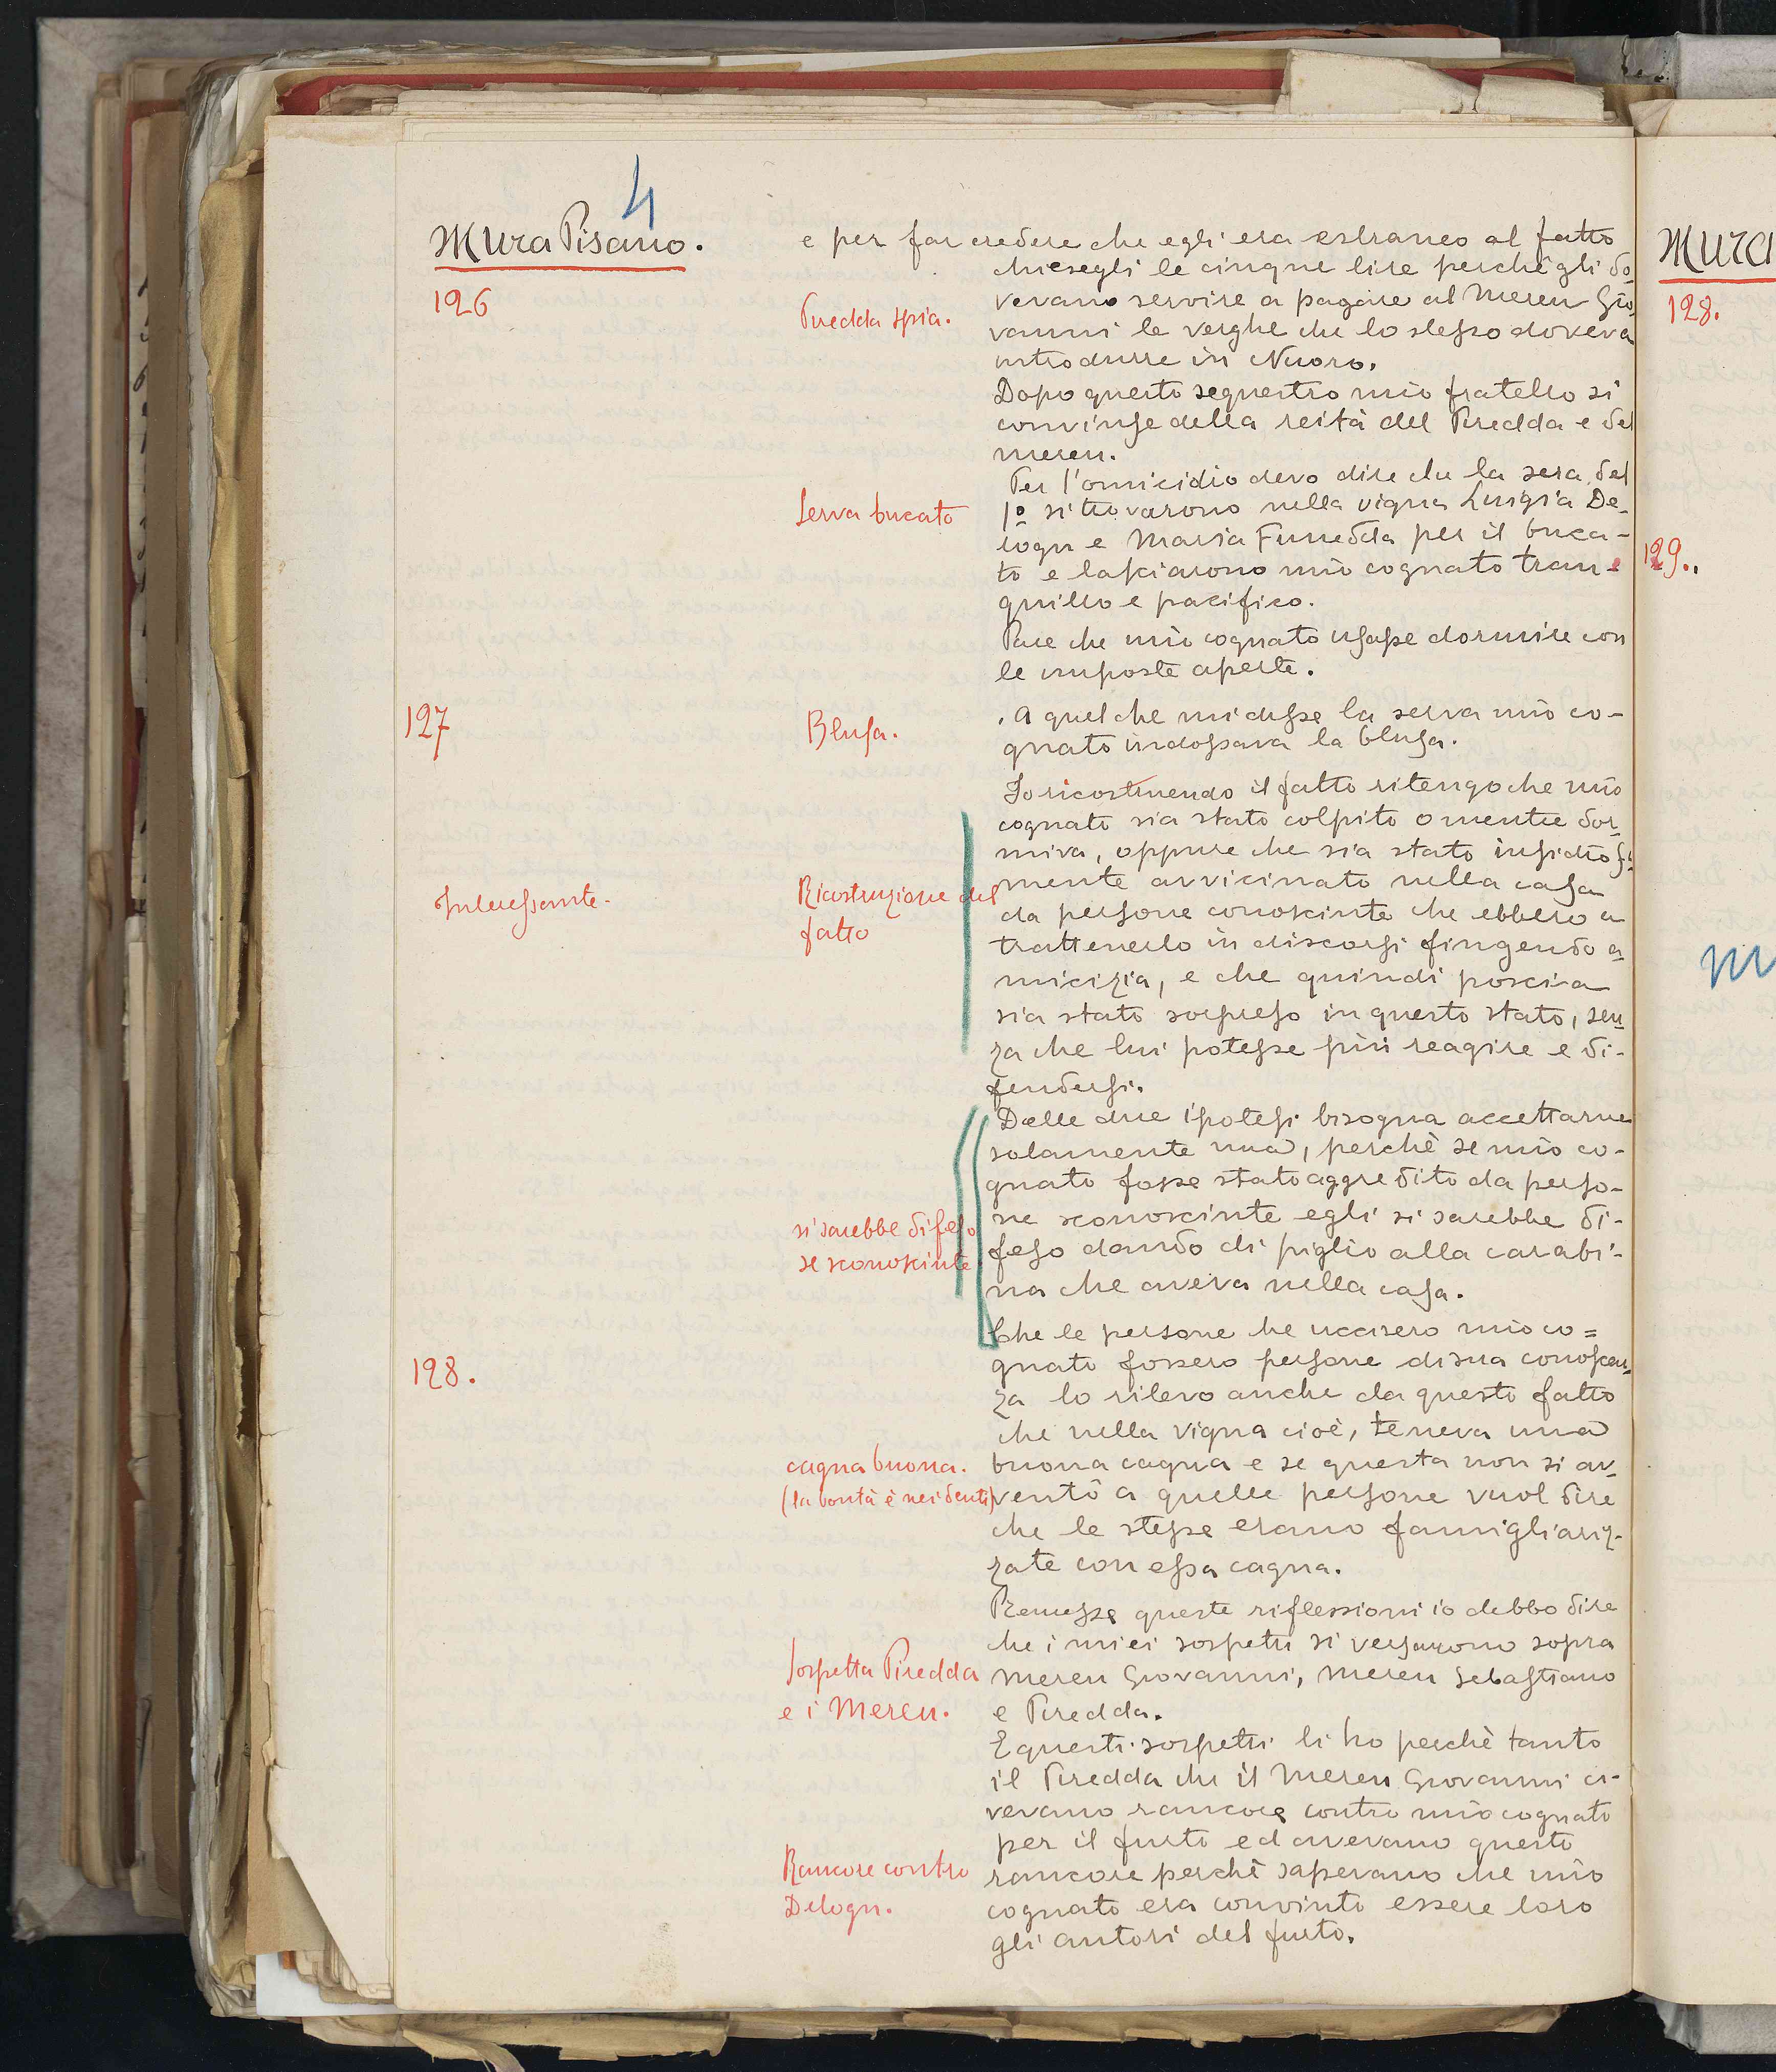 4
Mura Pisano.
126
Piredda spia.
e per far credere che egli era estraneo al fatto
chiesegli le cinque lire perchè gli do
vevano servire a pagare al Mereu Gio
vanni le verghe che lo stesso doveva
introdurre in Nuoro.
Dopo questo sequestro mio fratello si
convinse della reità del Piredda e del
Mereu.
Serva bucato
Per l'omicidio devo dire che la sera del
1º si trovarono nella vigna Luigia De-
logu e Maria Funedda per il buca-
to e lasciarono mio cognato tran-
quillo e pacifico.
Pare che mio cognato usasse dormire con
le imposte aperte.
127
Blusa.
A quel che mi disse la serva mio co-
gnato indossava la blusa.
Interessante.
Ricostruzione del
fatto
Io ricostruendo il fatto ritengo che mio
cognato sia stato colpito o mentre dor-
miva, oppure che sia stato insidiosa
mente avvicinato nella casa
da persone conoscinte che ebbero a
trattenerlo in discorsi fingendo a-
micizia, e che quindi poscia
sia stato sorpreso in questo stato, sen-
za che lui potesse più reagire e di-
fendersi.
si sarebbe difeso
se sconoscinte
Delle due ipotesi bisogna accettarne
solamente una, perchè se mio co-
gnato fosse stato aggredito da perso-
ne sconoscinte egli si sarebbe di-
feso dando di piglio alla carabi-
na che aveva nella casa.
128.
Che le persone che uccisero mio co=
gnato fossero persone di sua conoscen-
za lo rilevo anche da questo fatto
che nella vigna cioè, teneva una
cagna buona.
(la bontà è nei denti)
buona cagna e se questa non si av-
ventò a quelle persone vuol dire
che le stesse erano famigliariz-
zate con essa cagna.
Sospetta Piredda
e i Mereu.
Premesse queste riflessioni io debbo dire
che i miei sospetti si versarono sopra
Mereu Giovanni, Mereu Sebastiano
e Piredda.
E questi sospetti li ho perchè tanto
il Piredda che il Mereu Giovanni a-
vevano rancore contro mio cognato
Rancore contro
Delogu.
per il furto ed avevano questo
rancore perchè sapevano che mio
cognato era convinto essere loro
gli autori del furto.
Mura
128.
129.